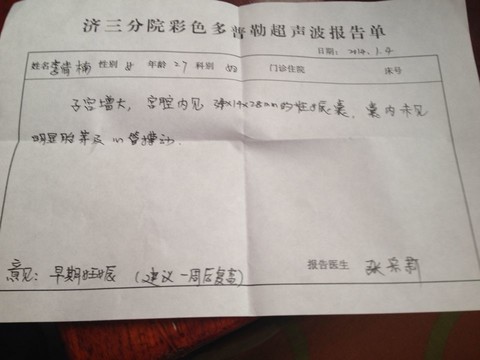 济三分院彩色多普勒超声波报告单
日期: 2014.1.9
姓名 李 楠 性别 女 年龄 27 科别 妇 门诊住院 床号
子宫增大, 宫腔内见 x14x28mm的妊娠囊, 囊内未见
明显胎芽及心管搏动.
意见: 早期妊娠 (建议一周后复查) 报告医生 张